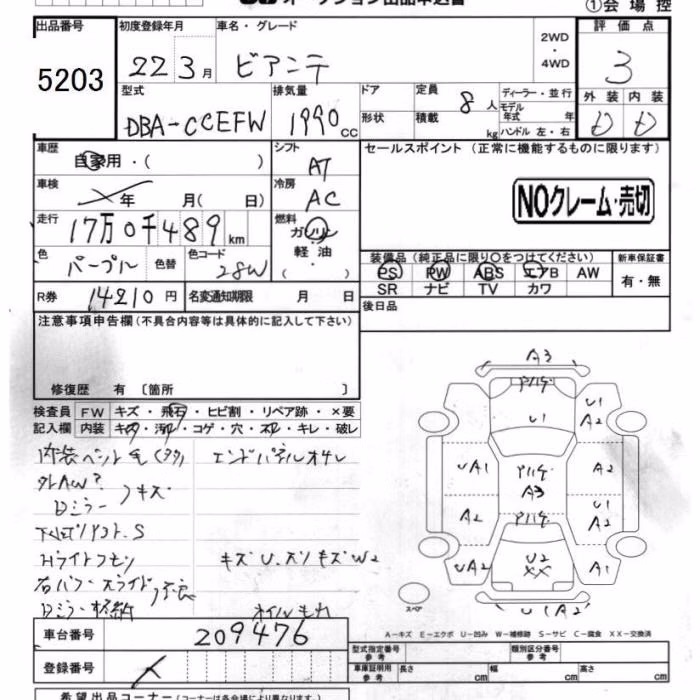 オークション出品申込書 ①会場控
出品番号 初度登録年月 車名・グレード 2WD・4WD 評価点
5203 22 3月 ビアンテ 3
型式 排気量 ドア 定員 8人 ディーラー・並行 外装 内装
DBA-CCEFW 1990cc 形状 積載 kg モデル年式 年 ハンドル 左・右 D D
車歴 自家用・( ) シフト AT セールスポイント (正常に機能するものに限ります)
車検 年 月( 日) 冷房 AC NOクレーム・売切
走行 17万0千489km 燃料 ガソリン・軽油・( )
色 パープル 色替 色コード 28W 装備品 (純正品に限り○をつけてください) 新車保証書
PS PW ABS エアB AW 有・無
SR ナビ TV カワ
R券 14210円 名変通知期限 月 日 後日品
注意事項申告欄(不具合内容等は具体的に記入して下さい)
修復歴 有 〔箇所 〕
検査員 FW キズ・飛石・ヒビ割・リペア跡・×要
記入欄 内装 キズ・汚れ・コゲ・穴・スレ・キレ・破レ
内装ペット毛(多タ) エンドパネルオサレ
外AW?
Dミラー キズ
S
Hライトクモリ キズU.スリキズW2
右パワースライド 不良
Dミラー格納 オイルもれ
A3
U1 U1 A2
UA1 A3 A2
A2 U1 A2
UA2 U2 XX A1
スペア U1(A2)
A-キズ E-エクボ U-凹み W-補修跡 S-サビ C-腐食 XX-交換済
車台番号 209476 型式指定番号 参考 類別区分番号 参考
登録番号 車庫証明用 参考 長さ cm 幅 cm 高さ cm
希望出品コーナー(コーナーは各会場により異なります。)